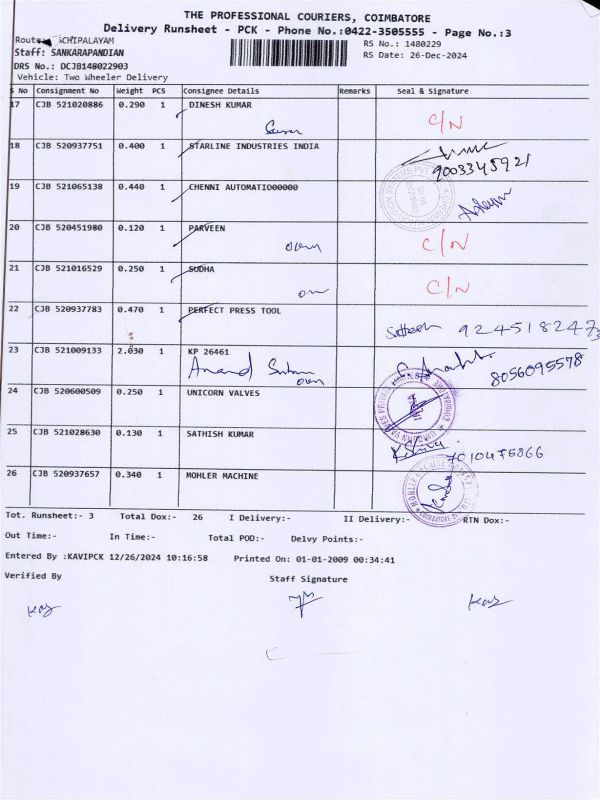 THE PROFESSIONAL COURIERS, COIMBATORE
Delivery Runsheet - PCK - Phone No.:0422-3505555 - Page No.:3
Route: ACHIPALAYAM
RS No.: 1480229
Staff: SANKARAPANDIAN
RS Date: 26-Dec-2024
DRS No.: DCJB148022903
Vehicle: Two Wheeler Delivery
S No Consignment No Weight PCS Consignee Details Remarks Seal & Signature
17 CJB 521020886 0.290 1 DINESH KUMAR
C/N
18 CJB 520937751 0.400 1 STARLINE INDUSTRIES INDIA
9003345921
19 CJB 521065138 0.440 1 CHENNI AUTOMATIO00000
20 CJB 520451980 0.120 1 PARVEEN
C/N
21 CJB 521016529 0.250 1 SUDHA
C/N
22 CJB 520937783 0.470 1 PERFECT PRESS TOOL
9245182473
23 CJB 521009133 2.030 1 KP 26461
Anand
8056095578
24 CJB 520600509 0.250 1 UNICORN VALVES
25 CJB 521028630 0.130 1 SATHISH KUMAR
26 CJB 520937657 0.340 1 MOHLER MACHINE
Tot. Runsheet:- 3 Total Dox:- 26 I Delivery:- II Delivery:- RTN Dox:-
Out Time:- In Time:- Total POD:- Delvy Points:-
Entered By :KAVIPCK 12/26/2024 10:16:58 Printed On: 01-01-2009 00:34:41
Verified By Staff Signature